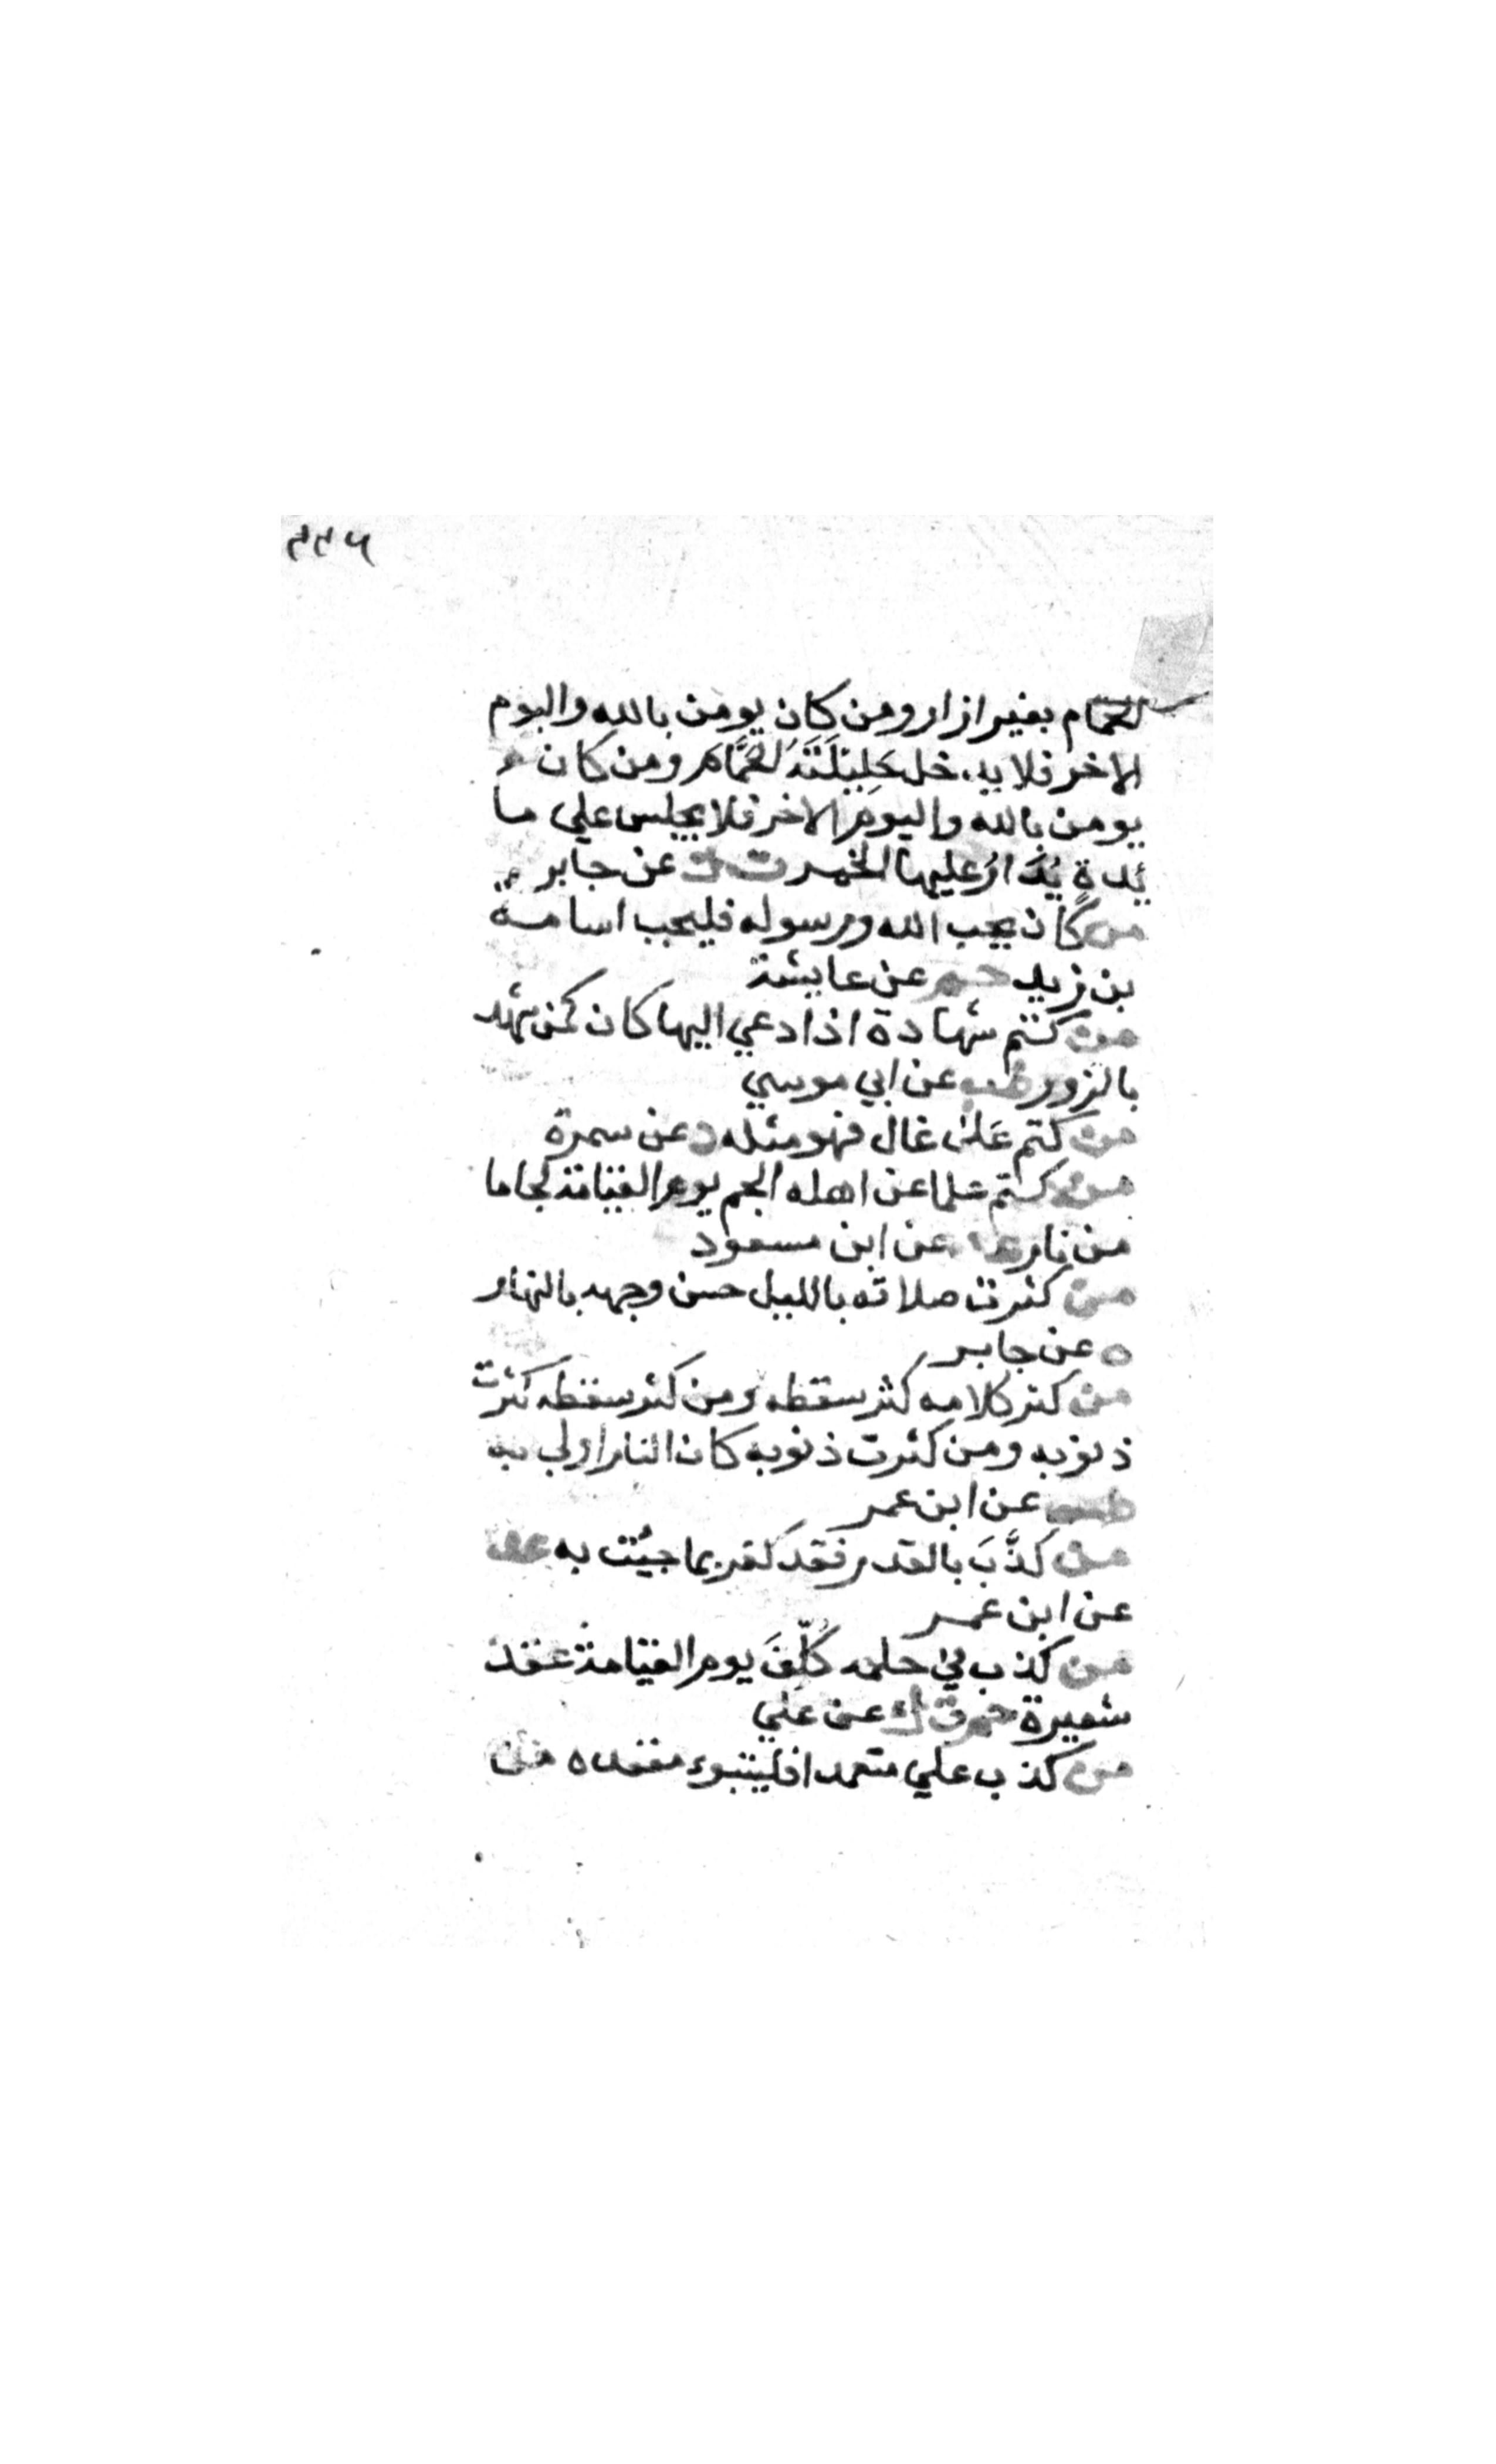 الحمام بغير ازار ومن كان يومن بالله واليوم
الاخر فلا يدخل حَلِيْلَتَهُ الحَمَّام ومن كان
يومن بالله واليوم الاخر فلا يجلس على ما
ئدةٍ يُدَارُ عليها الخمر ت ك عن جابر
من كان يحب الله ورسوله فليحب اسامة
بن زيد حم عن عايشة
من كتم شهادة اذا دعي اليها كان كمن شهد
بالزور طب عن ابي موسي
من كتم عَلىٰ غال فهو مثله د عن سمرة
من كتم علما عن اهله الجم يوم القيامة لجاما
من نار عد عن ابن مسعود
من كثرت صلاته بالليل حسن وجهه بالنهار
ه عن جابر
من كثر كلامه كثر سقطه ومن كثر سقطه كثرت
ذنوبه ومن كثرت ذنوبه كان النار اولى به
طس عن ابن عمر
من كَذَّبَ بالقدر فقد كفر بما جيُت به عد
عن ابن عمر
من كذب في حلمه كُلِّفَ يوم القيامة عقد
شعيرة حم ت ك عن علي
من كذب علي متعمدا فليتبوء مقعده من